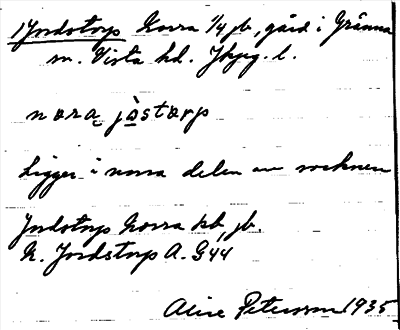 1 Jordstorp Norra 1/4 jb, gård i Gränna
sn. Vista hd. Jkpg. l.
nora jòstorp
Ligger i norra delen av socknen
Jordstorp Norra kb, jb.
N. Jordstorp A. G44
Alice Petersson 1935